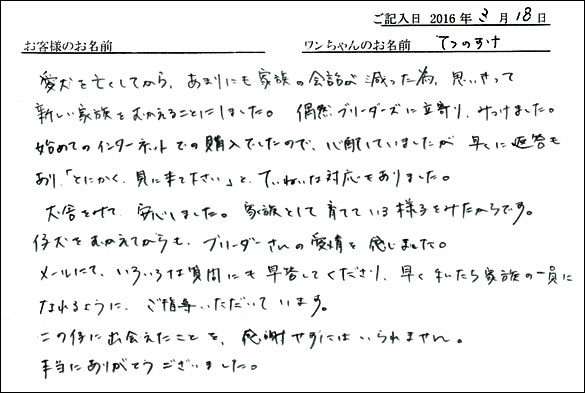 ご記入日 2016 年 3 月 18 日
お客様のお名前 ワンちゃんのお名前 てつのすけ
愛犬を亡くしてから、あまりにも家族の会話が減った為、思いきって
新しい家族をむかえることにしました。 偶然ブリーダーズに立寄り、みつけました。
始めてのインターネットでの購入でしたので、心配していましたが 早くに返答も
あり、「とにかく、見に来て下さい」と、ていねいな対応もありました。
犬舎をみて、安心しました。家族として育てている様子をみたからです。
仔犬をむかえてからも、ブリーダーさんの愛情を感じました。
メールにて、いろいろな質問にも早答してくださり、早く わたしたち家族の一員に
なれるように、ご指導いただいています。
この仔に出会えたことを、感謝せずにはいられません。
本当にありがとうございました。